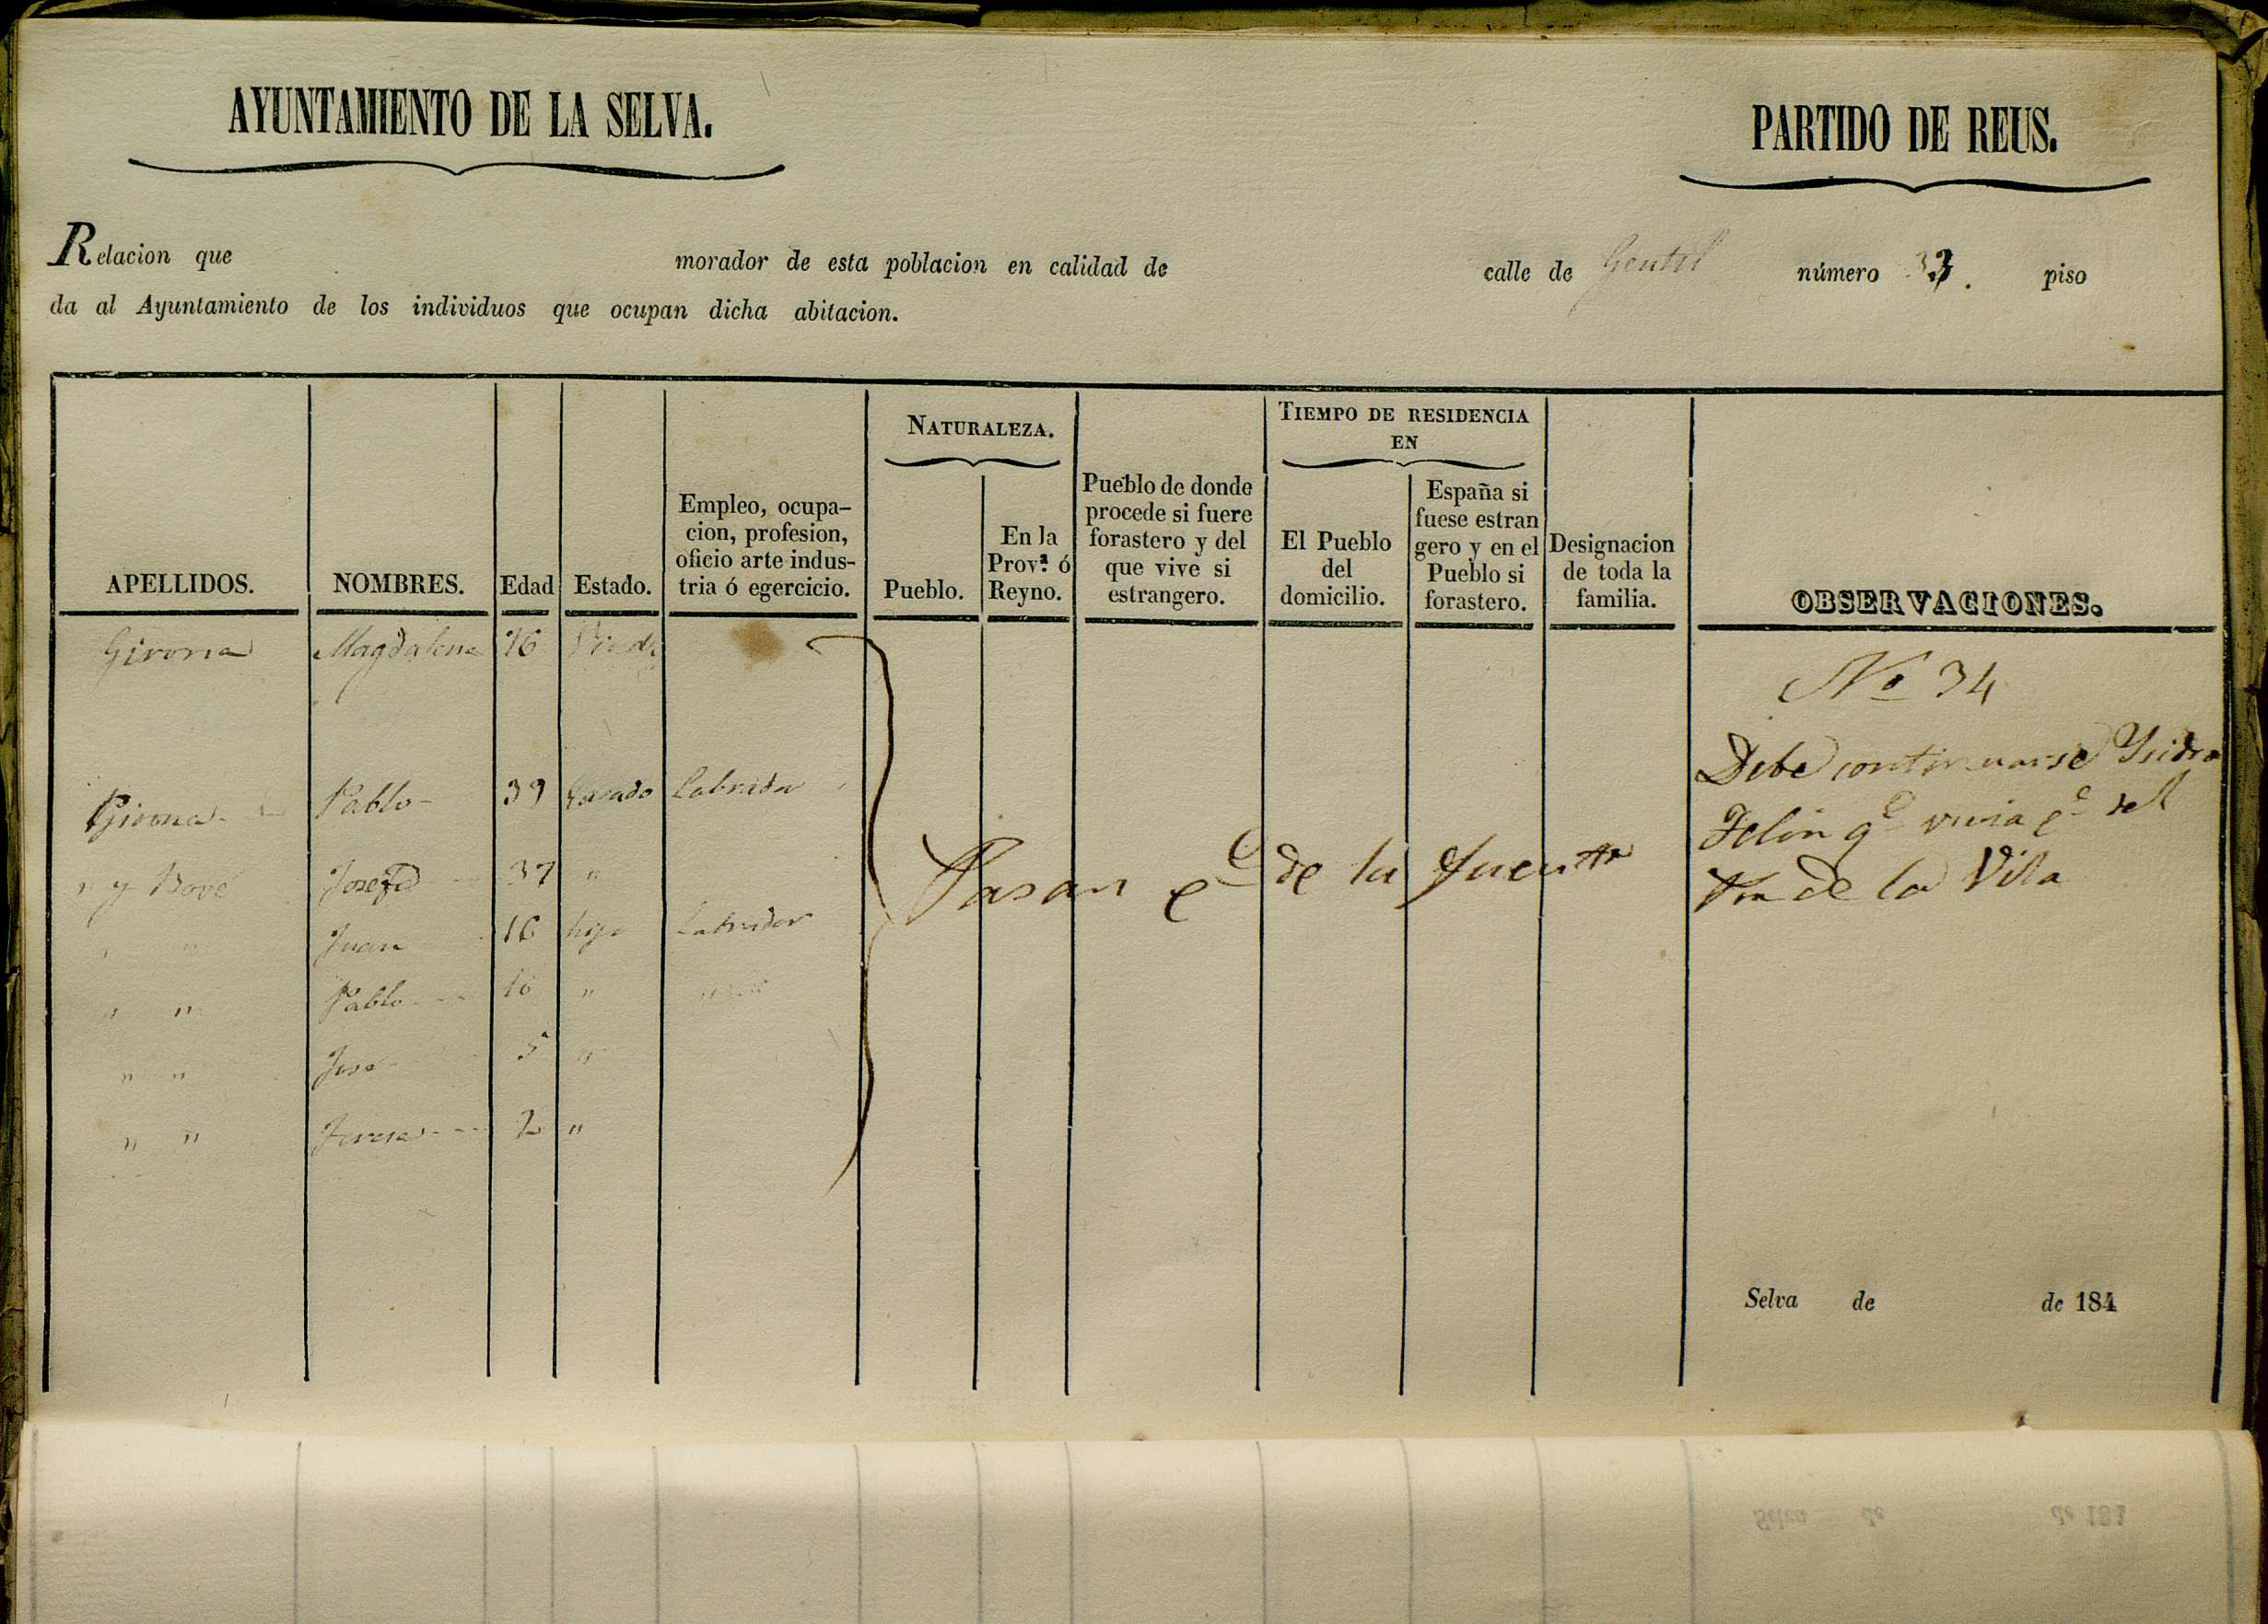 AYUNTAMIENTO DE LA SELVA.
PARTIDO DE REUS.
Relacion que morador de esta poblacion en calidad de calle de Gentil número 33. piso
da al Ayuntamiento de los individuos que ocupan dicha abitacion.
APELLIDOS. NOMBRES. Edad Estado. Empleo, ocupa-
cion, profesion,
oficio arte indus-
tria ó egercicio.
NATURALEZA.
Pueblo.
En la
Prov.ª ó
Reyno.
Pueblo de donde
procede si fuere
forastero y del
que vive si
estrangero.
TIEMPO DE RESIDENCIA
EN
El Pueblo
del
domicilio.
España si
fuese estran
gero y en el
Pueblo si
forastero.
Designacion
de toda la
familia.
OBSERVACIONES.
Girona Magdalena 76 Viuda
Girona Pablo 39 Casado Labrador
" y Bové Josefa 37 "
" " Juan 16 hijo Labrador
" " Pablo 10 "
" " José 5 "
" " Teresa 2 "
Pasan c.e de la fuente
No 34
Debe continuarse Ysidro
q.e vivia c.e del
de la Vila
Selva de de 184
Selva de de 184